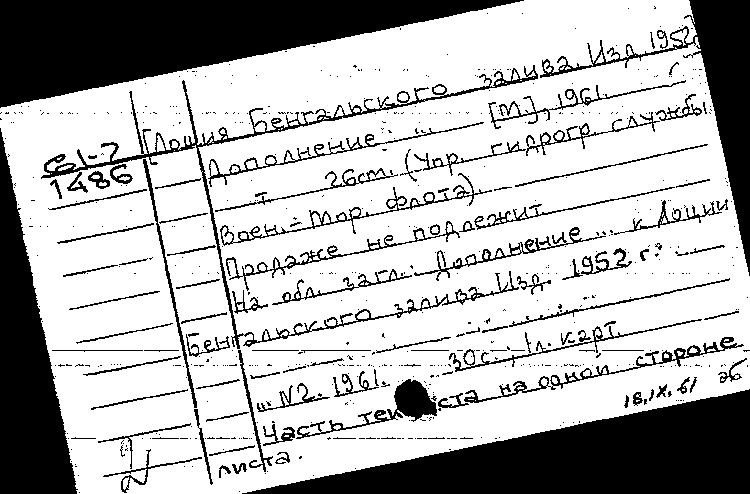 61-7
1486
[Лоция Бенгальского залива. Изд. 1952]
Дополнение: ... [М], 1961.
т 26 см. (Упр. гидрогр. службы
Воен.-Мор. флота).
Продаже не подлежит
На обл. загл.: Дополнение ... к Лоции
Бенгальского залива. Изд. 1952 г.:
... N2. 1961. 30 с.; 1 л. карт.
Часть текста на одной стороне
листа.
18.IX.61